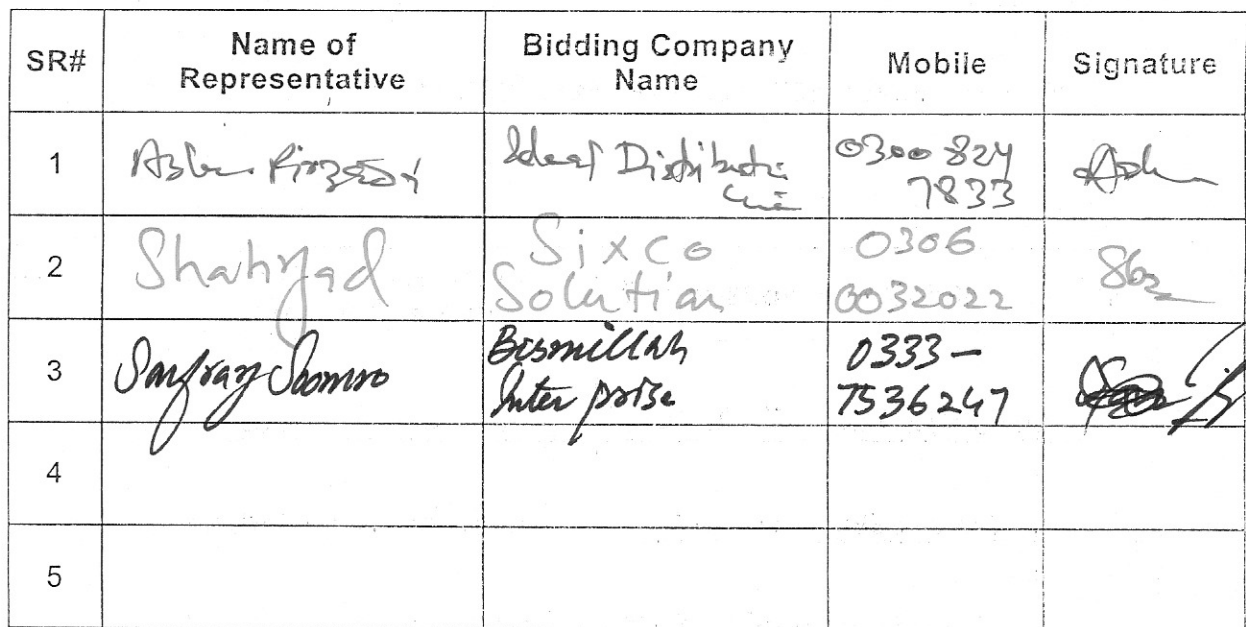 SR#
Name of
Representative
Bidding Company
Name
Mobile
Signature
1
Ideal Distribution
0300 824
7833
2
Shahzad
Sixco
Solution
0306
0032022
3
Sarfraz Soomro
Bismillah
Inter prise
0333-
7536247
4
5